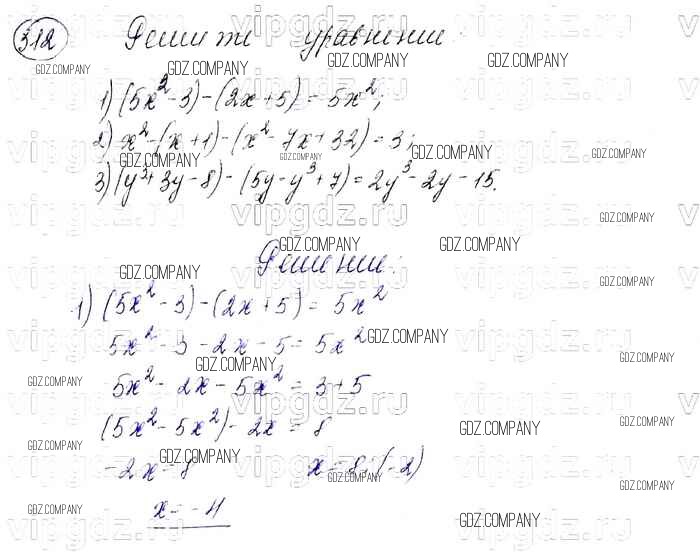 312 Решите уравнение:
1) (5x² - 3) - (2x + 5) = 5x²;
2) x² - (x + 1) - (x² - 7x + 32) = 3;
3) (y³ + 3y - 8) - (5y - y³ + 7) = 2y³ - 2y - 15.
Решение:
1) (5x² - 3) - (2x + 5) = 5x²
5x² - 3 - 2x - 5 = 5x²
5x² - 2x - 5x² = 3 + 5
(5x² - 5x²) - 2x = 8
-2x = 8 x = 8 : (-2)
x = -4
GDZ.COMPANY
vipgdz.ru